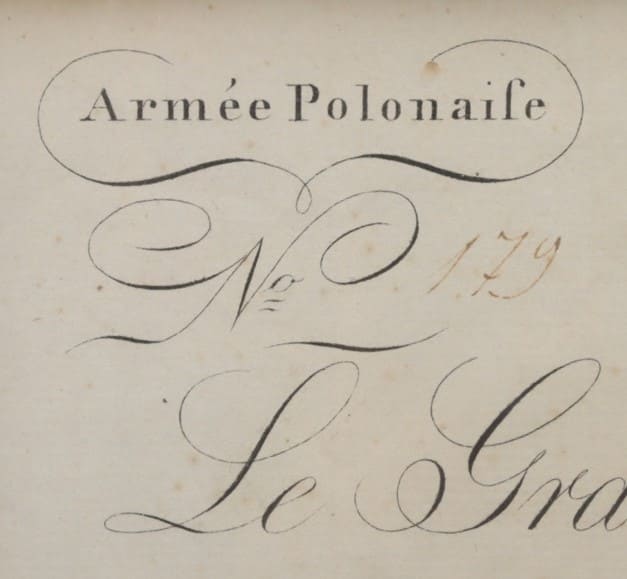 Armée Polonaiſe
No 179
Le Gra